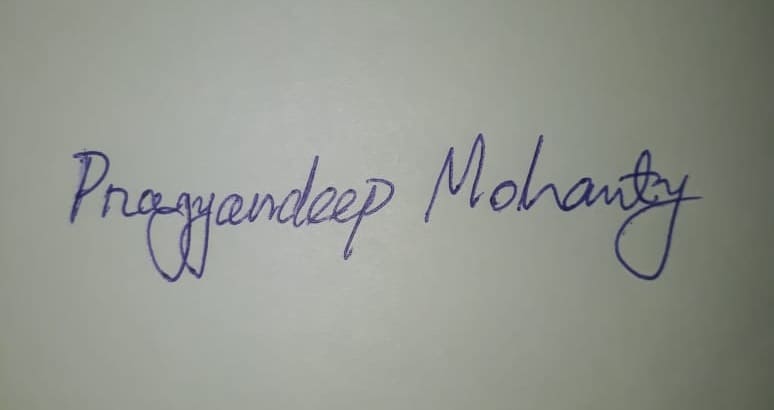 Pragyandeep Mohanty